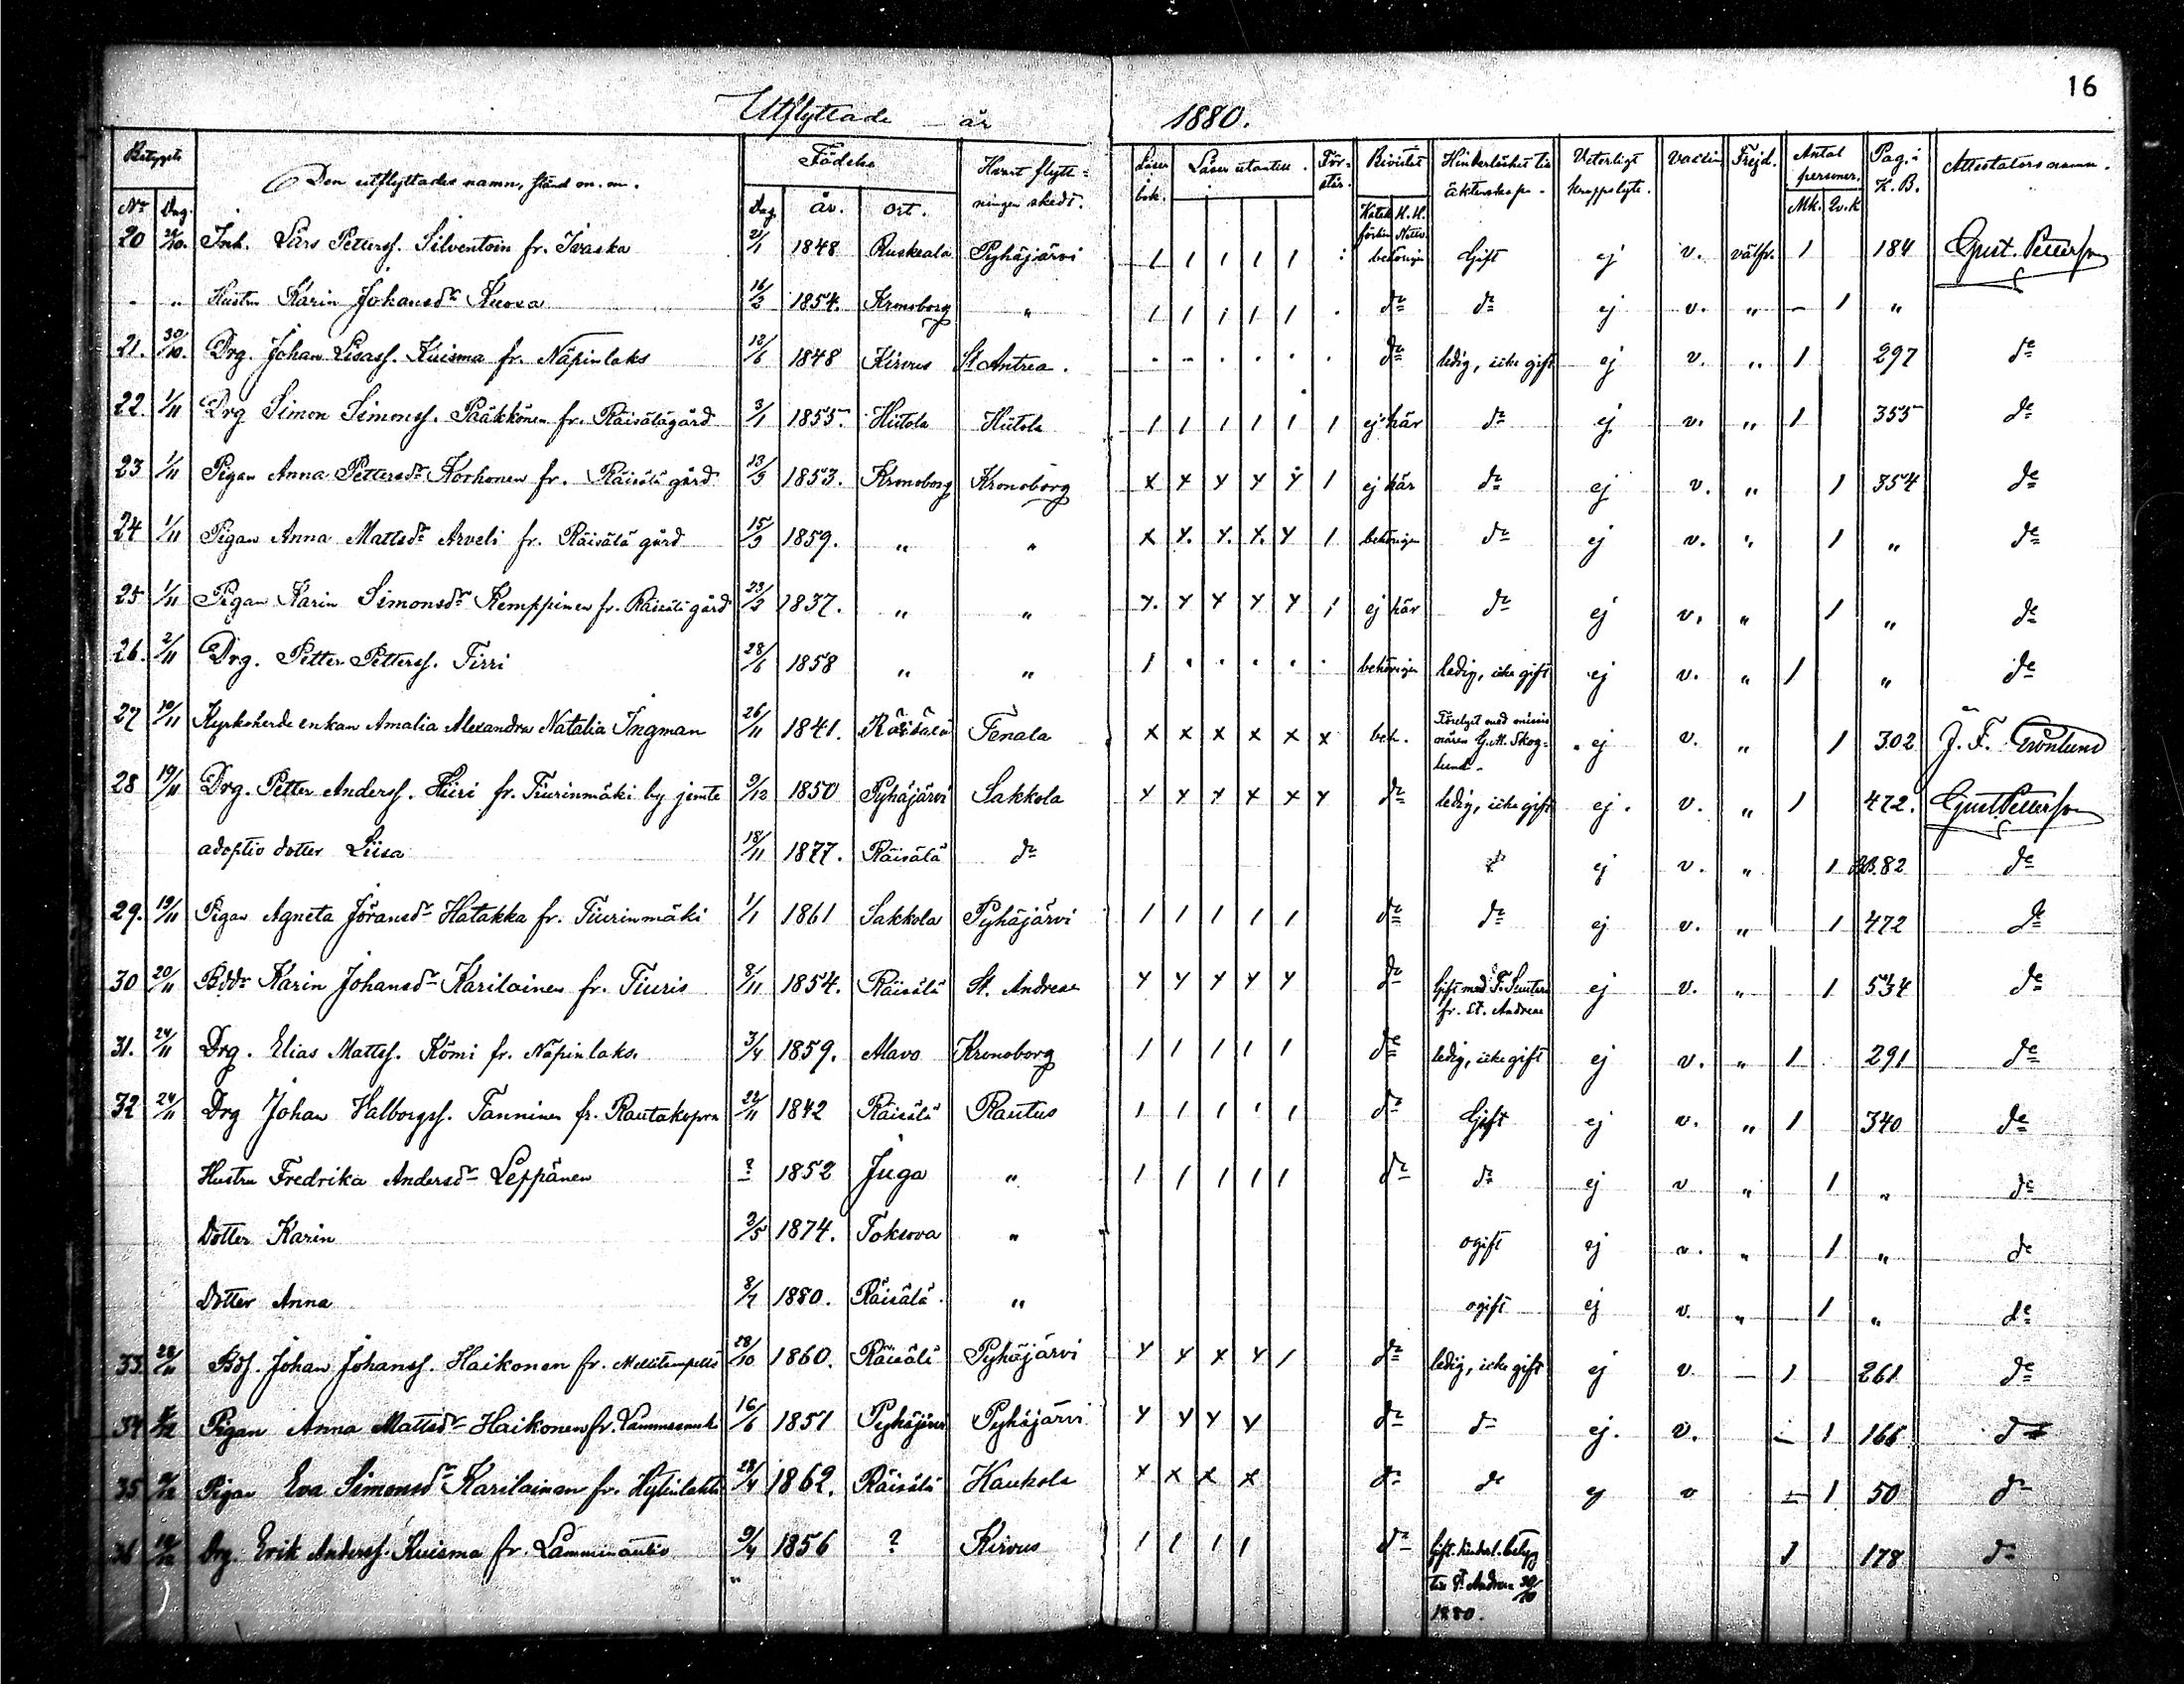 16
Utflyttade år 1880.
Betygets Den utflyttades namn, stånd m. m. Födelse Hvart flytt= Läser Läser utantill. För= Bivistat Hinderlöshet till Veterligt Vaccin Frejd. Antal Pag. i Attestators namn.
ningen skedt. bok. står. äktenskap. kroppslyte. personer. K. B.
No Dag. Dag. år. ort. Katek. H. H. Mk. Qv.k
förhör Nattv.
20 Inh. Lars Petterss. Silventoin fr. Ivaska 21/1 1848 Ruskeala Pyhäjärvi 1 1 1 1 1 behörigen Gift ej v. välfr. 1 184 Gust. Petterson
" " Hustru Karin Johansdr Kuosa 16/2 1854. Kronoborg " 1 1 1 1 1 do do ej v. " – 1 "
21. 30/10. Drg. Johan Lisass. Kuisma fr. Näpinlaks 12/6 1848 Kirvus St Antrea. do ledig, icke gift ej v. " 1 297 do
22. 1/11 Drg Simon Simonss. Pääkkönen fr. Räisälägård 3/1 1855. Hiitola Hiitola 1 1 1 1 1 1 ej här do ej v. " 1 355 do
23 1/11 Pigan Anna Pettersdr Korhonen fr. Räisälä gård 13/3 1853. Kronoborg Kronoborg x x x x x 1 ej här do ej v. " 1 354 do
24 1/11 Pigan Anna Mattsdr Arveli fr. Räisälä gård 15/3 1859. " " x x x x x 1 behörigen do ej v. " 1 " do
25 1/11 Pigan Karin Simonsdr Kemppinen fr. Räisälä gård 23/3 1837. " " x x x x x 1 ej här do ej v. " 1 " do
26. 2/11 Drg. Petter Petterss. Tirri 28/6 1858 " " 1 . . . . . behörigen ledig, icke gift ej v. " 1 " do
27 10/11 Kyrkoherde enkan Amalia Alexandra Natalia Ingman 26/11 1841. Räisälä Tenala x x x x x x beh. Förelyst med missio ej v. " 1 302 J. F. Grönlund
nären G. M. Skog=
lund.
28 19/11 Drg. Petter Anderss. Hiiri fr. Tiurinmäki by jemte 9/12 1850 Pyhäjärvi Sakkola x x x x x x do ledig, icke gift ej. v. " 1 472. Gust Petterson
adoptiv dotter Liisa 18/11 1877. Räisälä do ej v. " 1 82 do
29. 19/11 Pigan Agneta Jöransdr Hatakka fr. Tiurinmäki 1/1 1861 Sakkola Pyhäjärvi 1 1 1 1 1 do do ej v. " 1 472 do
30 20/11 Bddr Karin Johansdr Karilainen fr. Tiuris 8/11 1854. Räisälä St. Andreae x x x x x do Gift med ej v. " 1 534 do
fr. St. Andreae
31. 24/11 Drg. Elias Mattss. Kömi fr. Näpinlaks. 3/4 1859. Alavo Kronoborg 1 1 1 1 1 do ledig, icke gift ej v. " 1 291 do
32 24/11 Drg Johan Halborgss. Tanninen fr. Rautakopra 22/11 1842 Räisälä Rautus 1 1 1 1 1 do Gift ej v. " 1 340 do
Hustru Fredrika Andersdr Leppänen ? 1852 Juga " 1 1 1 1 1 do do ej v " 1 " do
Dotter Karin 2/5 1874. Toksova " ogift ej v. " 1 " do
Dotter Anna 8/7 1880. Räisälä. " ogift ej v. " 1 " do
33. 28/11 Bds. Johan Johanss. Haikonen fr. 28/10 1860. Räisälä Pyhäjärvi x x x x 1 do ledig, icke gift ej v – 1 261 do
34 Pigan Anna Mattsdr Haikonen fr. 16/6 1851 Pyhäjärvi Pyhäjärvi x x x x do do ej. v. – 1 166 do
35 Pigan Eva Simonsdr Karilainen fr. 28/4 1862. Räisälä Kaukola x x x x do do ej v – 1 50 do
36 Drg. Erik Anderss. Kuisma fr. Lamminautio 9/4 1856 ? Kirvus 1 1 1 1 do Gift. hinderl. betyg 1 178 do
till St Andreae 30/10
1880.